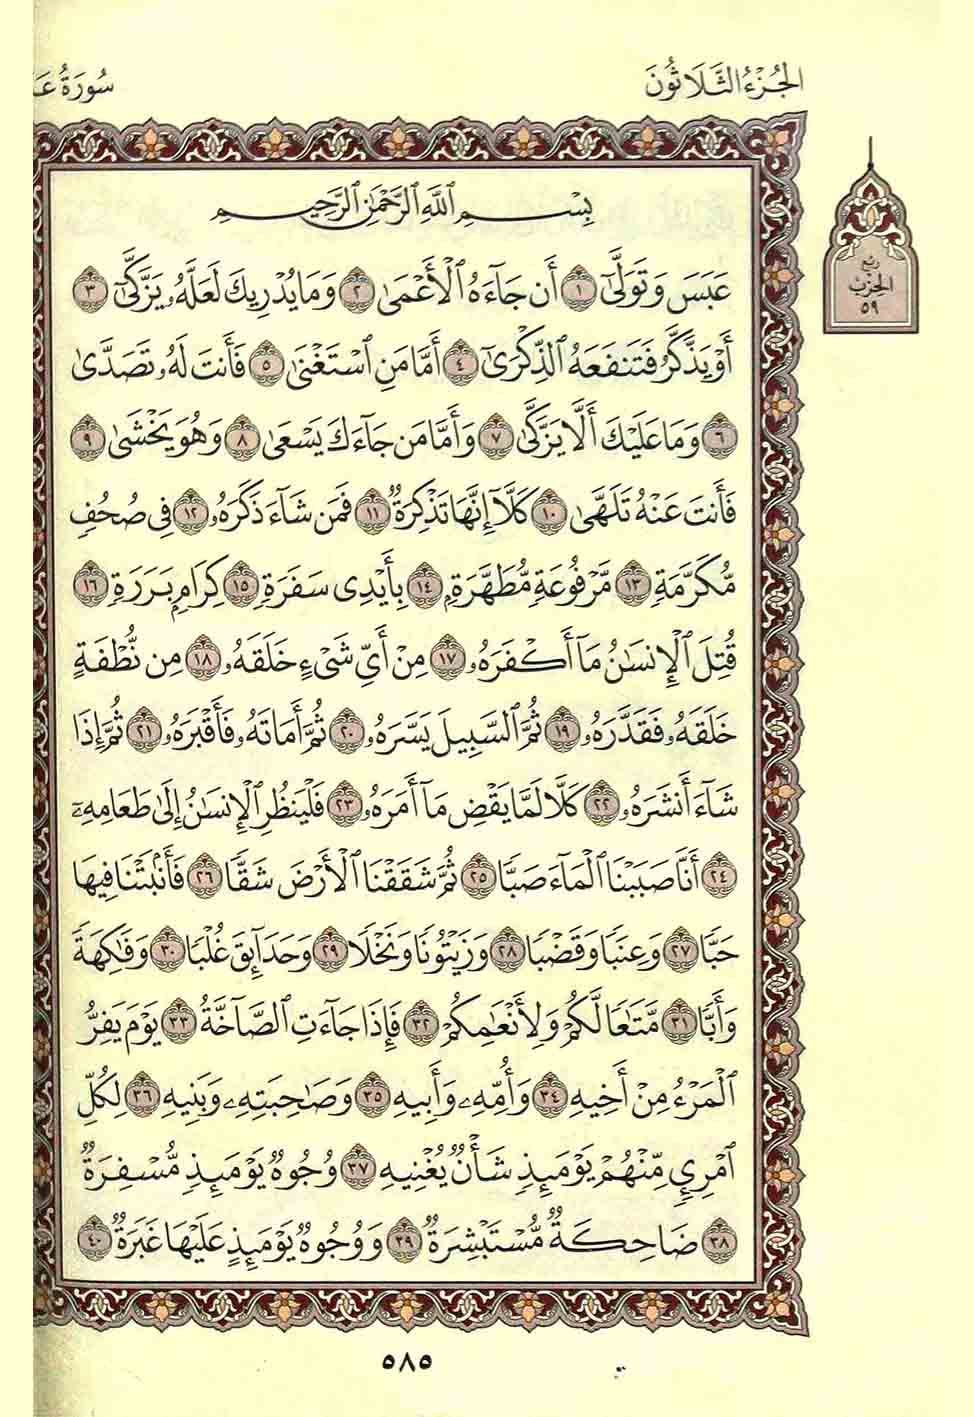 الجُزْءُ الثَّلَاثُونَ
سُورَةُ عَ
رُبْعُ
الحِزْبِ
٥٩
بِسْمِ ٱللَّهِ ٱلرَّحْمَٰنِ ٱلرَّحِيمِ
عَبَسَ وَتَوَلَّىٰٓ ١ أَن جَآءَهُ ٱلْأَعْمَىٰ ٢ وَمَا يُدْرِيكَ لَعَلَّهُۥ يَزَّكَّىٰٓ ٣
أَوْ يَذَّكَّرُ فَتَنفَعَهُ ٱلذِّكْرَىٰٓ ٤ أَمَّا مَنِ ٱسْتَغْنَىٰ ٥ فَأَنتَ لَهُۥ تَصَدَّىٰ
٦ وَمَا عَلَيْكَ أَلَّا يَزَّكَّىٰ ٧ وَأَمَّا مَن جَآءَكَ يَسْعَىٰ ٨ وَهُوَ يَخْشَىٰ ٩
فَأَنتَ عَنْهُ تَلَهَّىٰ ١٠ كَلَّآ إِنَّهَا تَذْكِرَةٌ ١١ فَمَن شَآءَ ذَكَرَهُۥ ١٢ فِى صُحُفٍ
مُّكَرَّمَةٍ ١٣ مَّرْفُوعَةٍ مُّطَهَّرَةٍۭ ١٤ بِأَيْدِى سَفَرَةٍ ١٥ كِرَامٍۭ بَرَرَةٍ ١٦
قُتِلَ ٱلْإِنسَٰنُ مَآ أَكْفَرَهُۥ ١٧ مِنْ أَىِّ شَىْءٍ خَلَقَهُۥ ١٨ مِن نُّطْفَةٍ
خَلَقَهُۥ فَقَدَّرَهُۥ ١٩ ثُمَّ ٱلسَّبِيلَ يَسَّرَهُۥ ٢٠ ثُمَّ أَمَاتَهُۥ فَأَقْبَرَهُۥ ٢١ ثُمَّ إِذَا
شَآءَ أَنشَرَهُۥ ٢٢ كَلَّا لَمَّا يَقْضِ مَآ أَمَرَهُۥ ٢٣ فَلْيَنظُرِ ٱلْإِنسَٰنُ إِلَىٰ طَعَامِهِۦٓ
٢٤ أَنَّا صَبَبْنَا ٱلْمَآءَ صَبًّا ٢٥ ثُمَّ شَقَقْنَا ٱلْأَرْضَ شَقًّا ٢٦ فَأَنۢبَتْنَا فِيهَا
حَبًّا ٢٧ وَعِنَبًا وَقَضْبًا ٢٨ وَزَيْتُونًا وَنَخْلًا ٢٩ وَحَدَآئِقَ غُلْبًا ٣٠ وَفَٰكِهَةً
وَأَبًّا ٣١ مَّتَٰعًا لَّكُمْ وَلِأَنْعَٰمِكُمْ ٣٢ فَإِذَا جَآءَتِ ٱلصَّآخَّةُ ٣٣ يَوْمَ يَفِرُّ
ٱلْمَرْءُ مِنْ أَخِيهِ ٣٤ وَأُمِّهِۦ وَأَبِيهِ ٣٥ وَصَٰحِبَتِهِۦ وَبَنِيهِ ٣٦ لِكُلِّ
ٱمْرِئٍ مِّنْهُمْ يَوْمَئِذٍ شَأْنٌ يُغْنِيهِ ٣٧ وُجُوهٌ يَوْمَئِذٍ مُّسْفِرَةٌ
٣٨ ضَاحِكَةٌ مُّسْتَبْشِرَةٌ ٣٩ وَوُجُوهٌ يَوْمَئِذٍ عَلَيْهَا غَبَرَةٌ ٤٠
٥٨٥